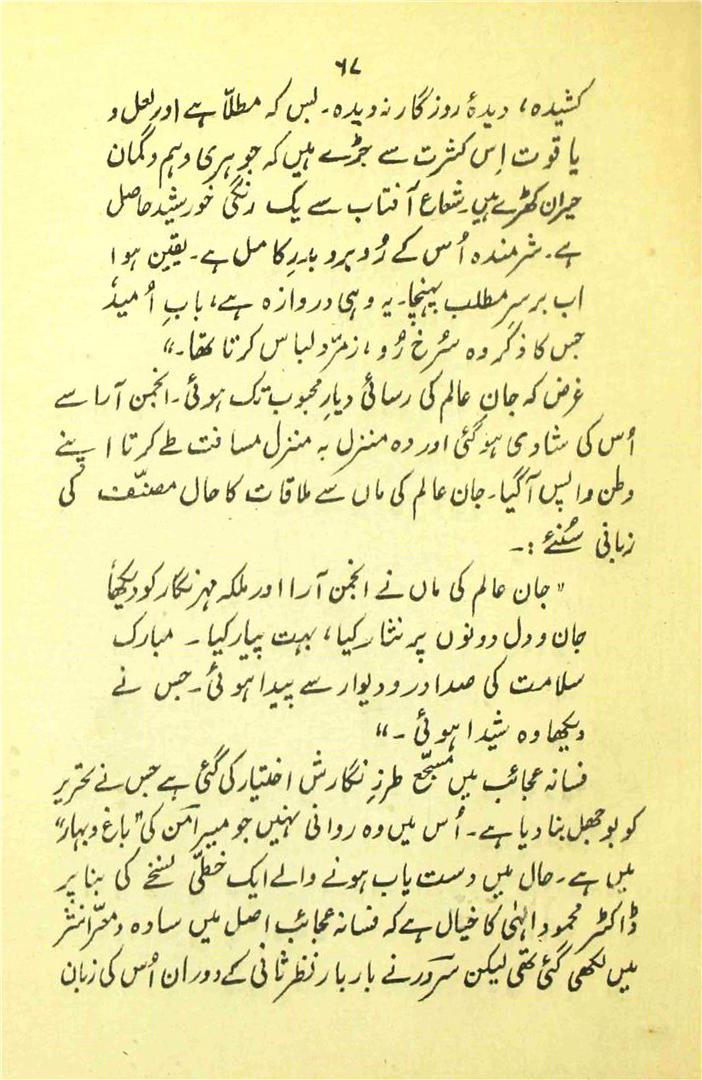 ۶۷
کشیدہ، دیدۂ روزگار نہ دیدہ۔ بس کہ مطلّا ہے اور لعل و
یاقوت اِس کثرت سے جڑے ہیں کہ جوہری وہم و گمان
حیران کھڑے ہیں۔ شعاعِ آفتاب سے یک رنگیِ خورشید حاصل
ہے۔ شرمندہ اُس کے رُوبرو بدرِ کامل ہے۔ یقین ہوا
اب برسرِ مطلب پہنچا۔ یہ وہی دروازہ ہے، بابِ اُمید
جس کا ذکر وہ سُرخ رُو، زمرّد لباس کرتا تھا۔"
غرض کہ جانِ عالم کی رسائی دیارِ محبوب تک ہوئی۔ انجمن آرا سے
اُس کی شادی ہو گئی اور وہ منزل بہ منزل مسافت طے کرتا اپنے
وطن واپس آگیا۔ جان عالم کی ماں سے ملاقات کا حال مصنّف کی
زبانی سُنئے :۔
"جان عالم کی ماں نے انجمن آرا اور ملکہ مہر نگار کو دیکھا
جان و دل دونوں پر نثار کیا، بہت پیار کیا۔ مبارک
سلامت کی صدا در و دیوار سے پیدا ہوئی۔ جس نے
دیکھا وہ شیدا ہوئی۔"
فسانہ عجائب میں مسجّع طرزِ نگارش اختیار کی گئی ہے جس نے تحریر
کو بوجھل بنا دیا ہے۔ اُس میں وہ روانی نہیں جو میر امن کی "باغ و بہار"
میں ہے۔ حال میں دست یاب ہونے والے ایک خطّی نسخے کی بنا پر
ڈاکٹر محمود الٰہی کا خیال ہے کہ فسانہ عجائب اصل میں سادہ و معرّا نثر
میں لکھی گئی تھی لیکن سرور نے بار بار نظر ثانی کے دوران اُس کی زبان